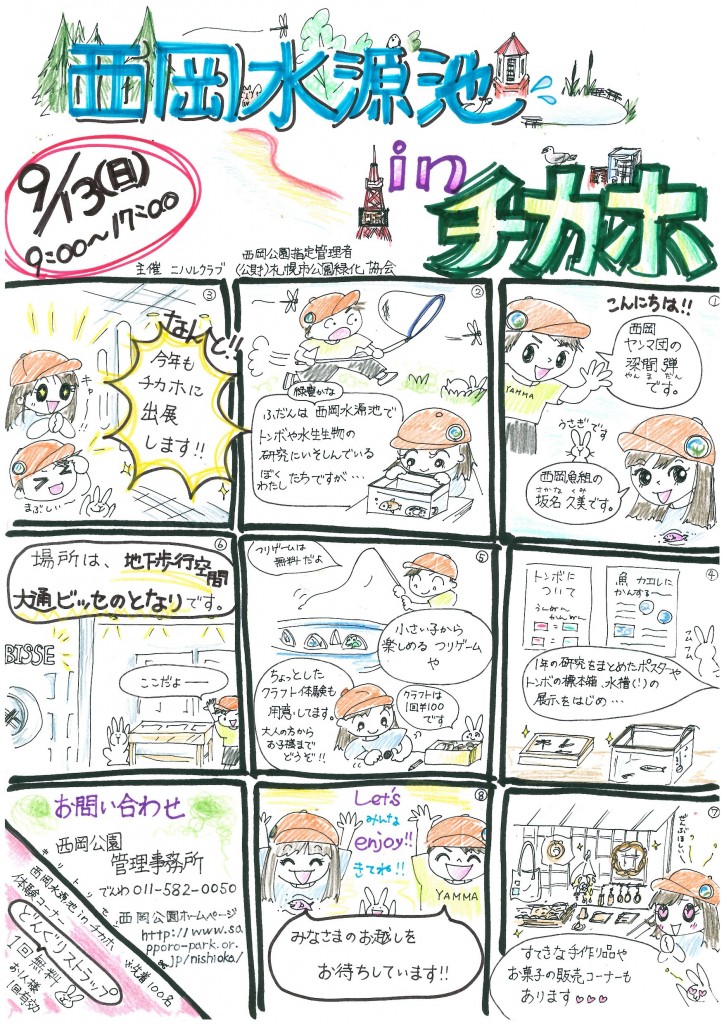 西岡水源池
in
チカホ
9/13(日)
9:00〜17:00
主催 ニハルクラブ
西岡公園指定管理者
(公財)札幌市公園緑化協会
①
こんにちは!!
西岡
ヤンマ団の
深間 弾
かん ま だん
です。
YAMMA
うさぎです
西岡魚組の
さかな くみ
坂名 久美です。
②
緑豊かな
ふだんは 西岡水源池で
トンボや水生生物の
研究にいそしんでいる
ぼく
わたし たちですが…
③
なんと!!
今年も
チカホに
出展
します!!
キャー
まぶしい
④
トンボに
ついて
魚 カエルに
かんする〜
フムフム
1年の研究をまとめたポスターや
トンボの標本箱、水槽(!)の
展示をはじめ…
⑤
フリゲームは
無料だよ
小さい子から
楽しめる つりゲーム
や
ちょっとした
クラフト体験も
用意してます。
大人の方から
お子様まで
どうぞ!!
クラフトは
1回¥100
です
⑥
場所は、地下歩行空間
大通ビッセのとなりです。
BISSE
ここだよー
⑦
ぜんぶほしい
すてきな手作り品や
お菓子の販売コーナーも
あります♡♡♡
⑧
Let's
みんな
enjoy!!
きてね!!
YAMMA
みなさまのお越しを
お待ちしています!!
お問い合わせ
西岡公園
管理事務所
でんわ 011-582-0050
西岡公園ホームページ
http://www.sa
pporo-park.or.
jp/nishioka/
キリトリセン
西岡水源池inチカホ
体験コーナー
どんぐりストラップ
1回無料
お1人様
1回有効
先着100名